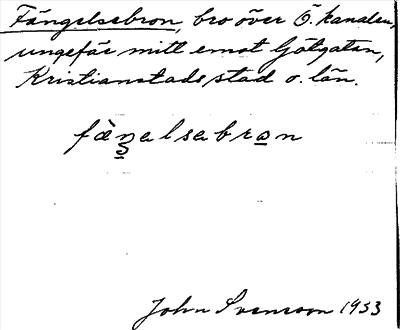 Fängelsebron, bro över Ö. kanalen,
ungefär mitt emot Götgatan,
Kristianstads stad o. län.
fàŋelsebron
John Svensson 1933